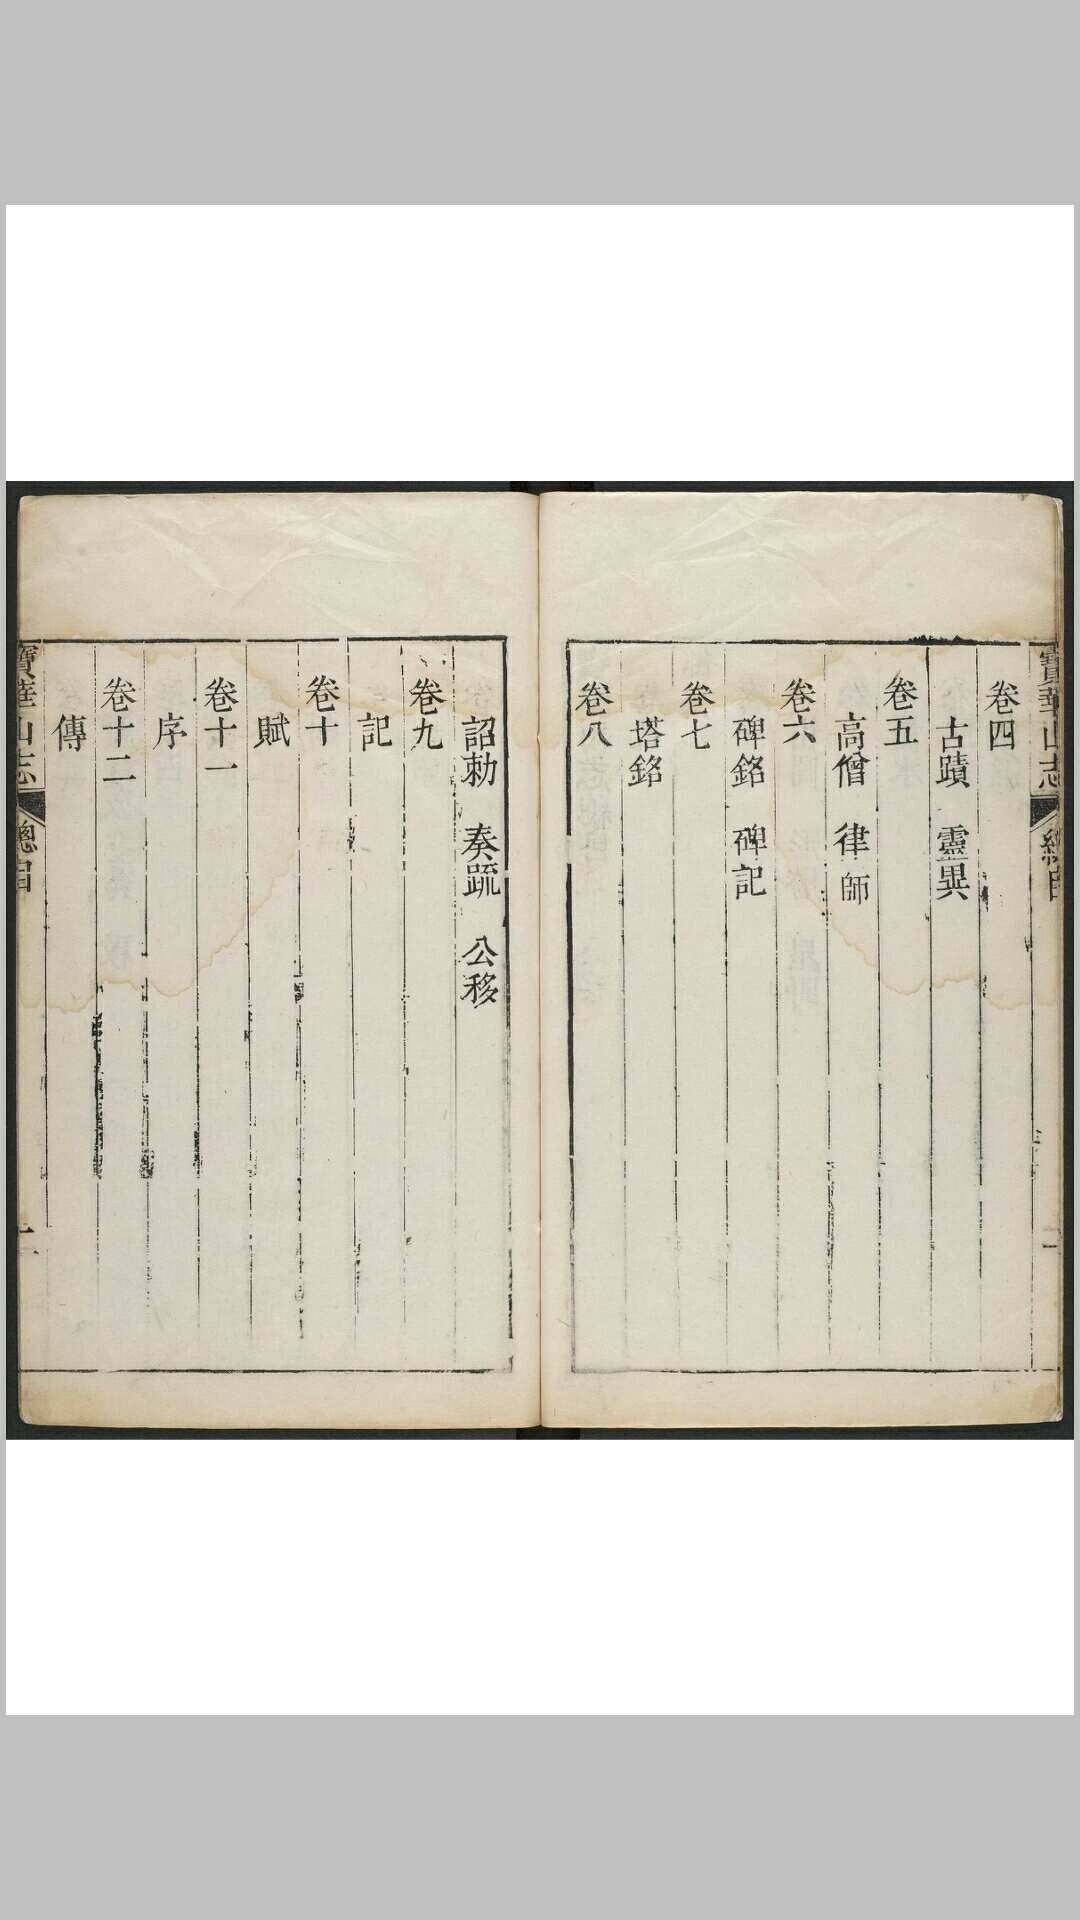 寶華山志 總目 一
卷四
古蹟 靈異
卷五
高僧 律師
卷六
碑銘 碑記
卷七
塔銘
卷八
詔勅 奏疏 公移
卷九
記
卷十
賦
卷十一
序
卷十二
傳
寶華山志 總目 二